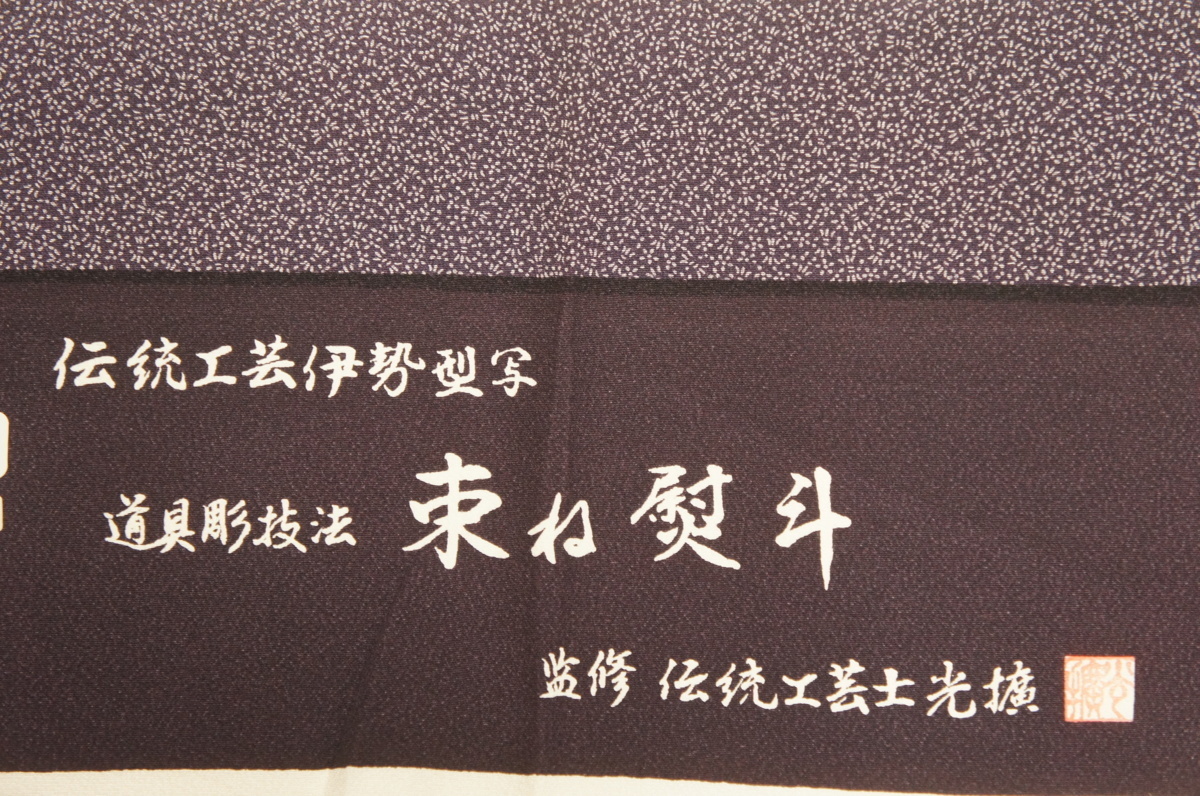 伝統工芸伊勢型写
道具彫技法 束ね熨斗
监修 伝統工芸士光擴